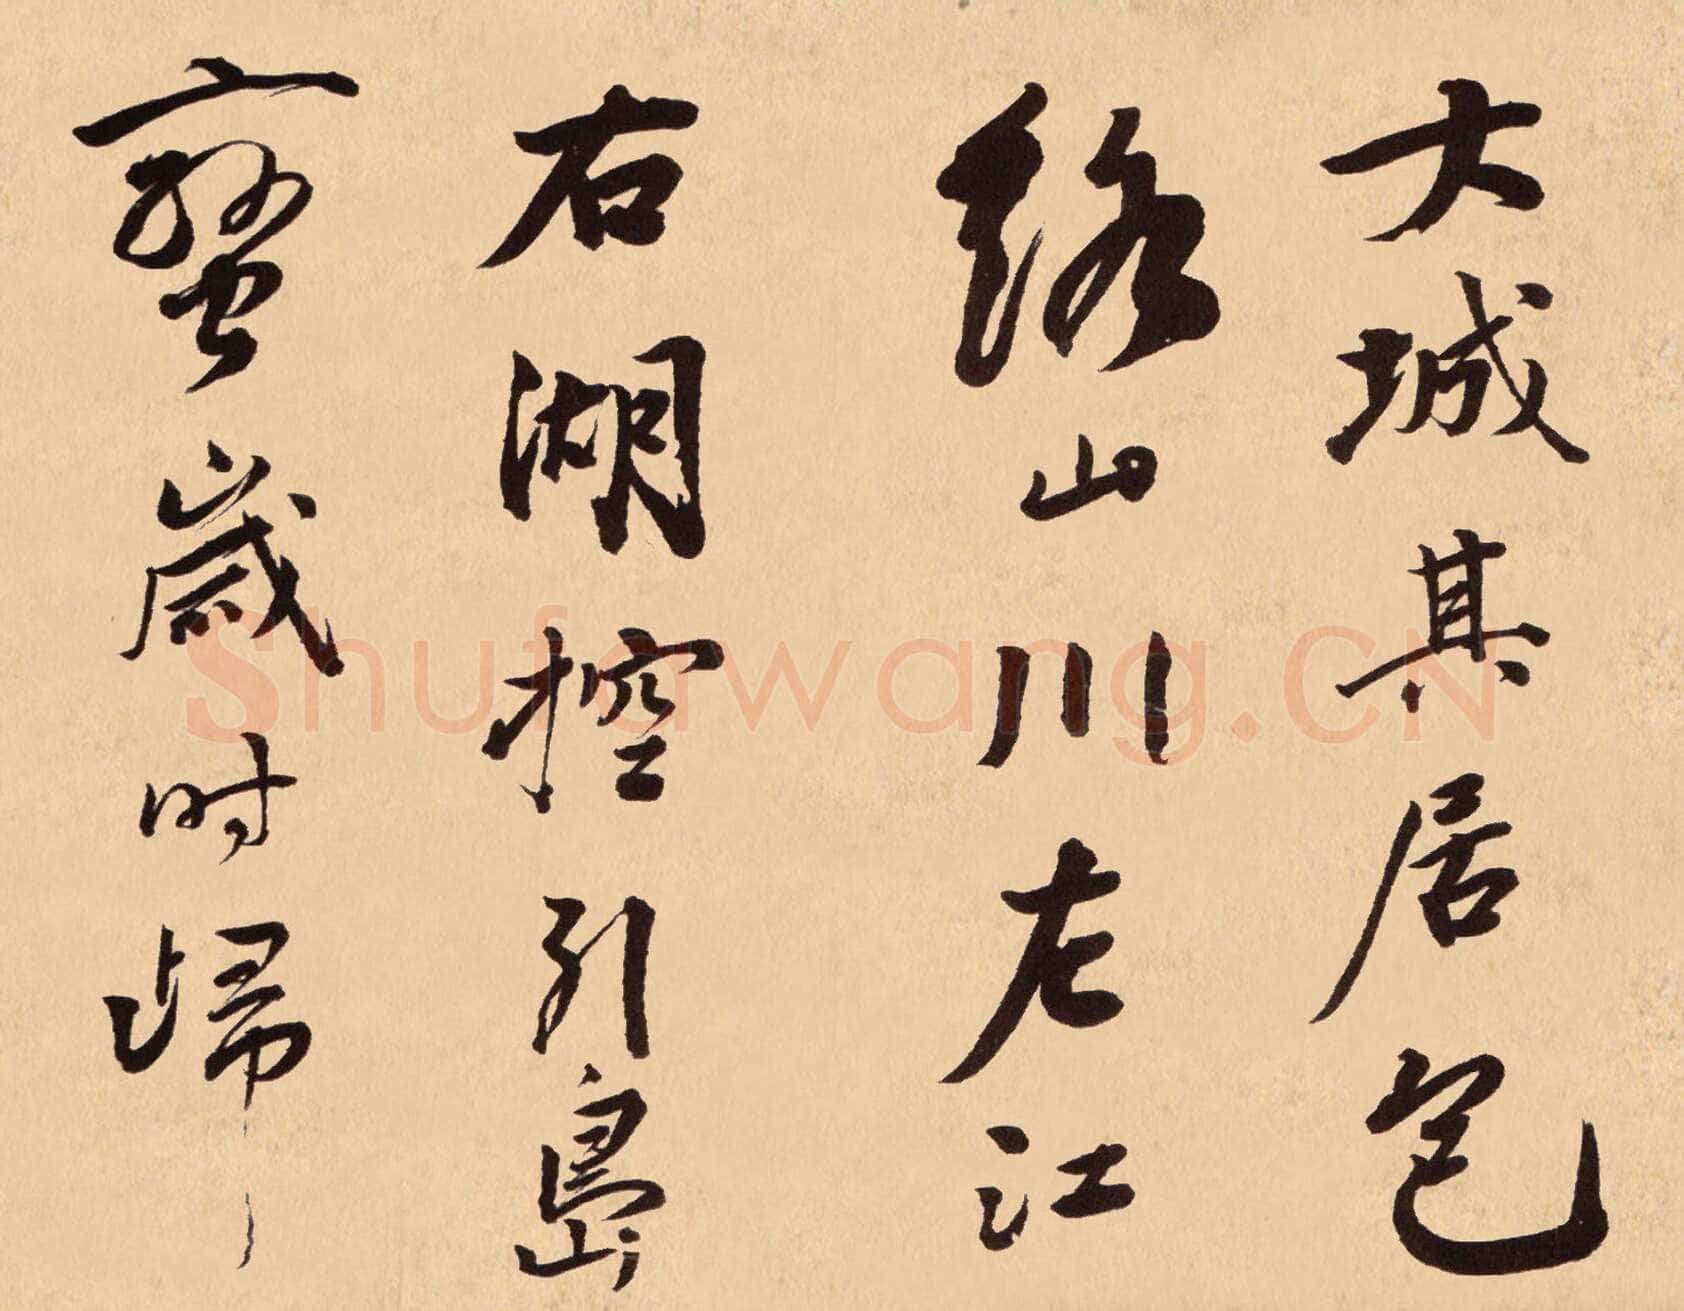 大城其居包
络山川左江
右湖控引島
蠻歲时歸
Shufawang.CN